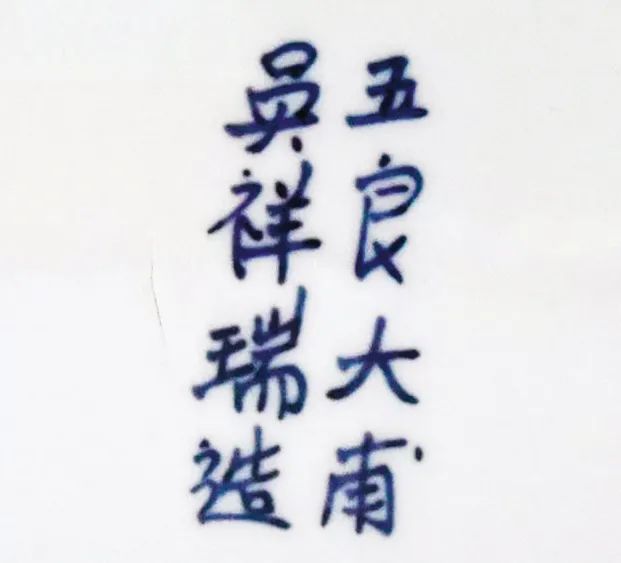 五良大甫
吳祥瑞造